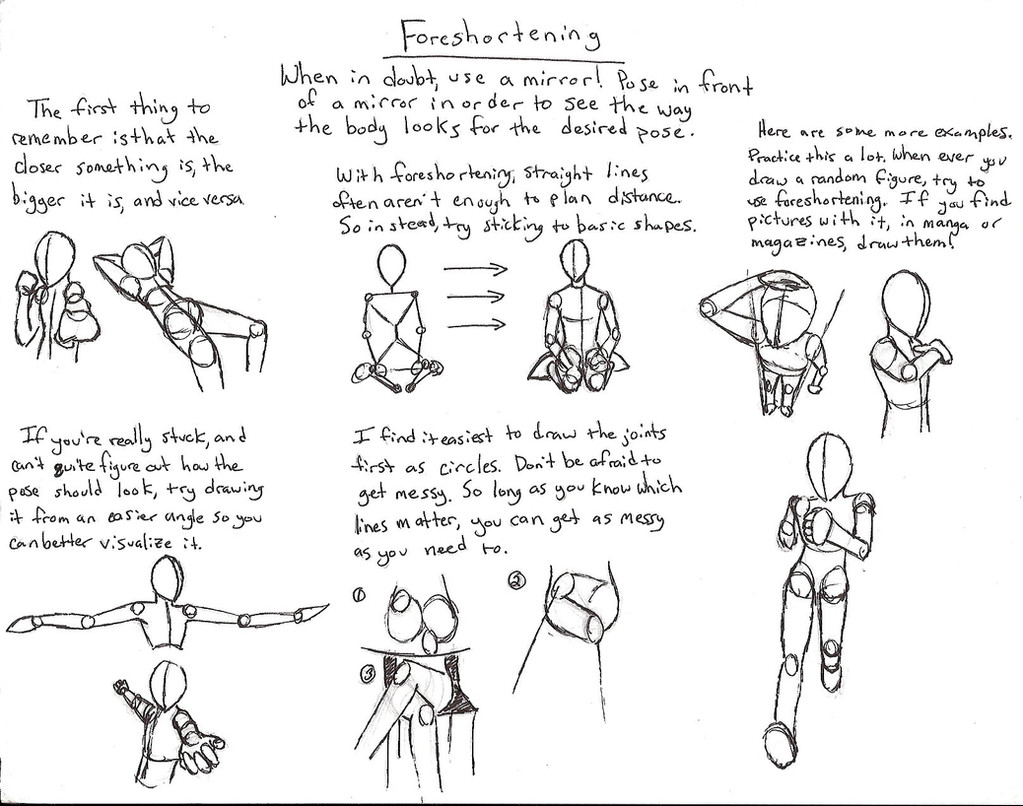 Foreshortening
When in doubt, use a mirror! Pose in front
of a mirror in order to see the way
the body looks for the desired pose.
The first thing to
remember is that the
closer something is, the
bigger it is, and vice versa
With foreshortening, straight lines
often aren't enough to plan distance.
So instead, try sticking to basic shapes.
Here are some more examples.
Practice this a lot. When ever you
draw a random figure, try to
use foreshortening. If you find
pictures with it, in manga or
magazines, draw them!
If you're really stuck, and
can't quite figure out how the
pose should look, try drawing
it from an easier angle so you
can better visualize it.
I find it easiest to draw the joints
first as circles. Don't be afraid to
get messy. So long as you know which
lines matter, you can get as messy
as you need to.
1
2
3